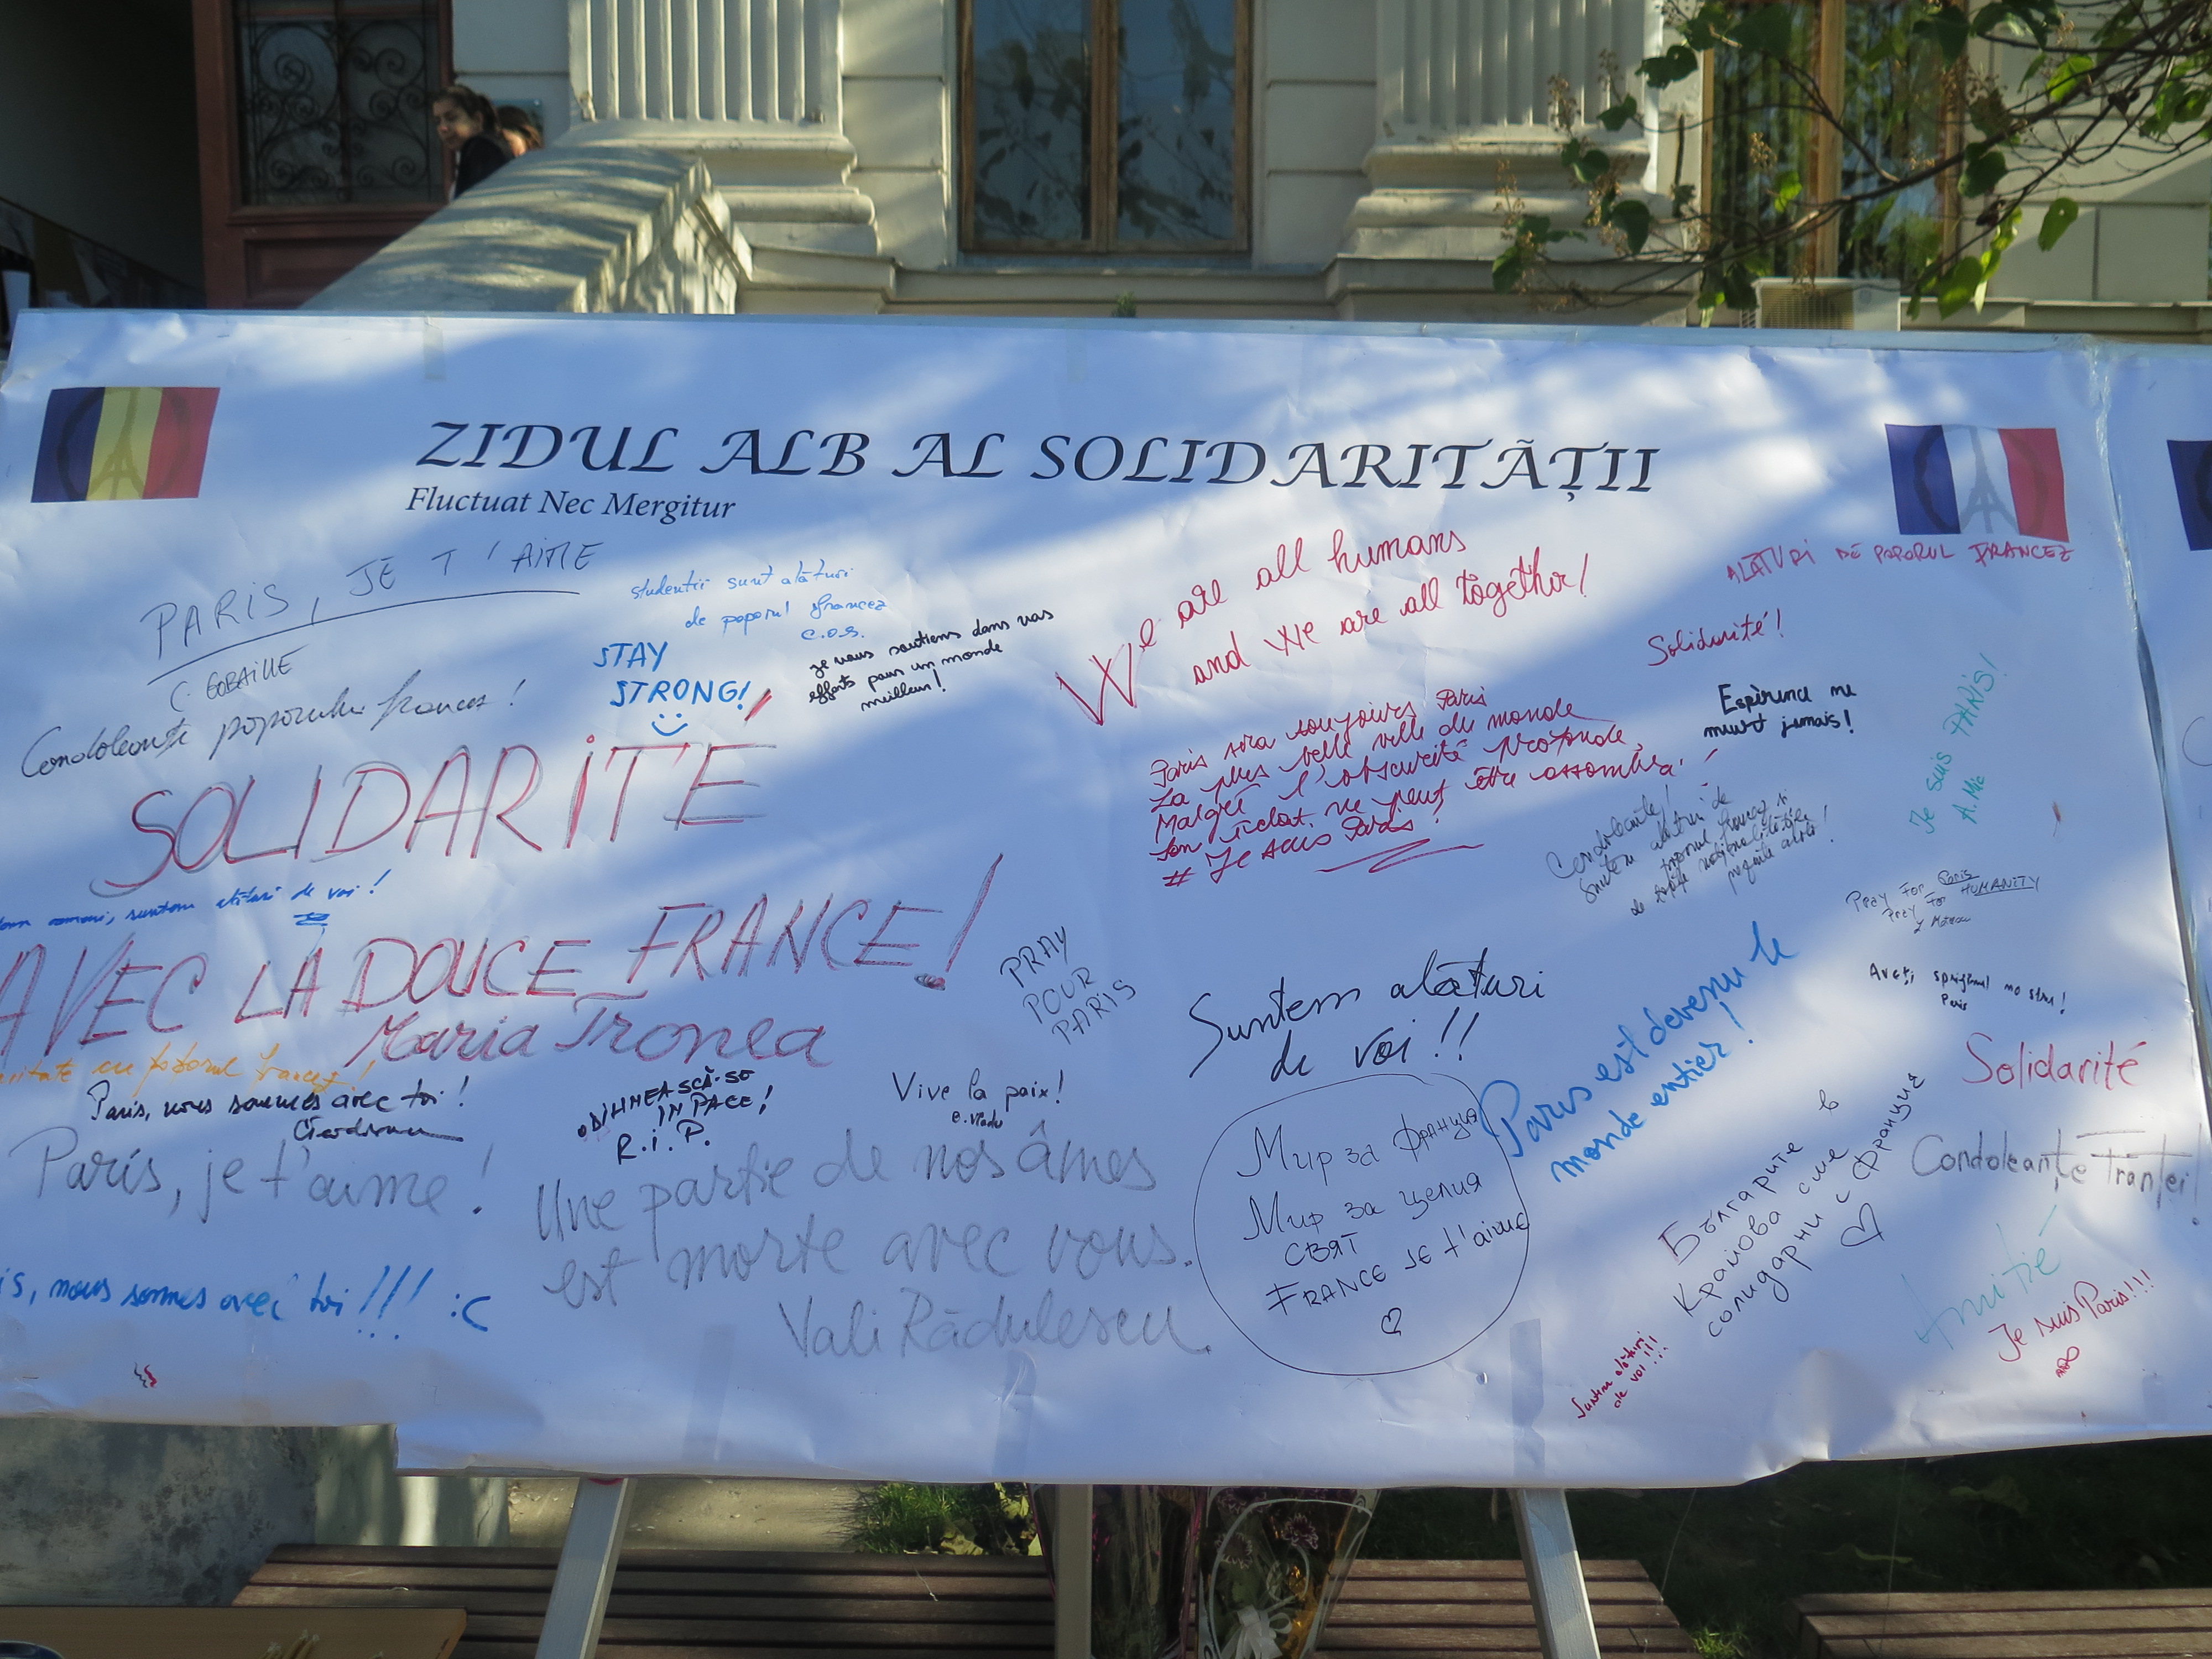 ZIDUL ALB AL SOLIDARITĂȚII
Fluctuat Nec Mergitur
PARIS, JE T'AIME
studenții sunt alături
de poporul francez
C.O.S.
STAY
STRONG!
Je vous soutiens dans vos
efforts pour un monde
meilleur!
Condoleanțe poporului francez!
SOLIDARITE
suntem alături de voi!
AVEC LA DOUCE FRANCE!
Maria Tronea
cu poporul francez!
Paris, nous sommes avec toi!
Paris, je t'aime!
is, nous sommes avec toi!!! :C
ODIHNEASCĂ-SE
IN PACE!
R.I.P.
PRAY
POUR
PARIS
Vive la paix!
Une partie de nos âmes
est morte avec vous.
Vali Rădulescu
We are all humans
and We are all together!
Paris sera toujours Paris
La plus belle ville du monde
Malgré l'obscurité profonde
Son éclat ne peut être assombri
# Je suis Paris!
Suntem alături
de voi!!
Мир за Франция
Мир за целия
свят
FRANCE JE t'aime
Paris est devenu le
monde entier!
ALĂTURI DE POPORUL FRANCEZ
Solidarité!
Espérance ne
meurt jamais!
Je suis PARIS!
Condoleanțe!
Suntem alături de
poporul francez și
de toate naționalitățile
Pray For Paris
Pray For HUMANITY
Aveți sprijinul nostru!
Paris
Solidarité
Condoleanțe Franței!
Българите в
Крайова сме
солидарни с Франция
Amitié
Je suis Paris!!!
Suntem alături
de voi!!!